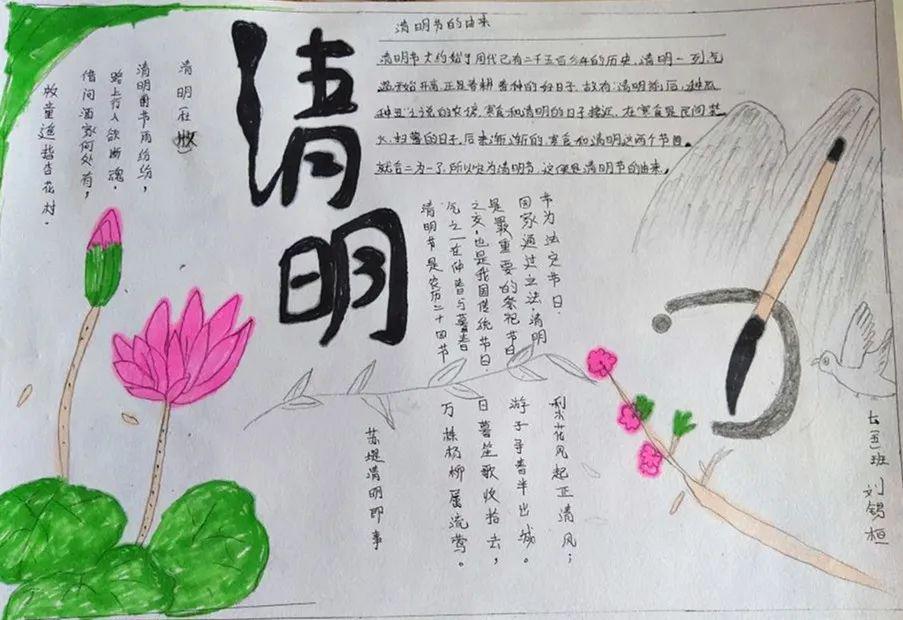 清明
清明节的由来
清明节大约始于周代已有二千五百多年的历史,清明一到气
温开始升高,正是春耕春种的好日子,故有:清明前后,种瓜
种豆之说的农谚,寒食和清明的日子接近,在寒食是民间禁
火,扫墓的日子,后来渐渐的,寒食和清明这两个节日。
就合二为一了,所以定为清明节,这便是清明节的由来。
清明(杜牧)
清明节雨纷纷,
路上行人欲断魂。
借问酒家何处有,
牧童遥指杏花村.
清明节是农历二十四节
气之一在仲春与暮春
之交,也是我国传统节日,
是最重要的祭祀节日
国家通过立法,清明
节为法定节日.
苏堤清明即事
梨花风起正清风;
游子寻春半出城。
日暮笙歌收拾去,
万株杨柳属流莺。
七(五)班 刘锡桓